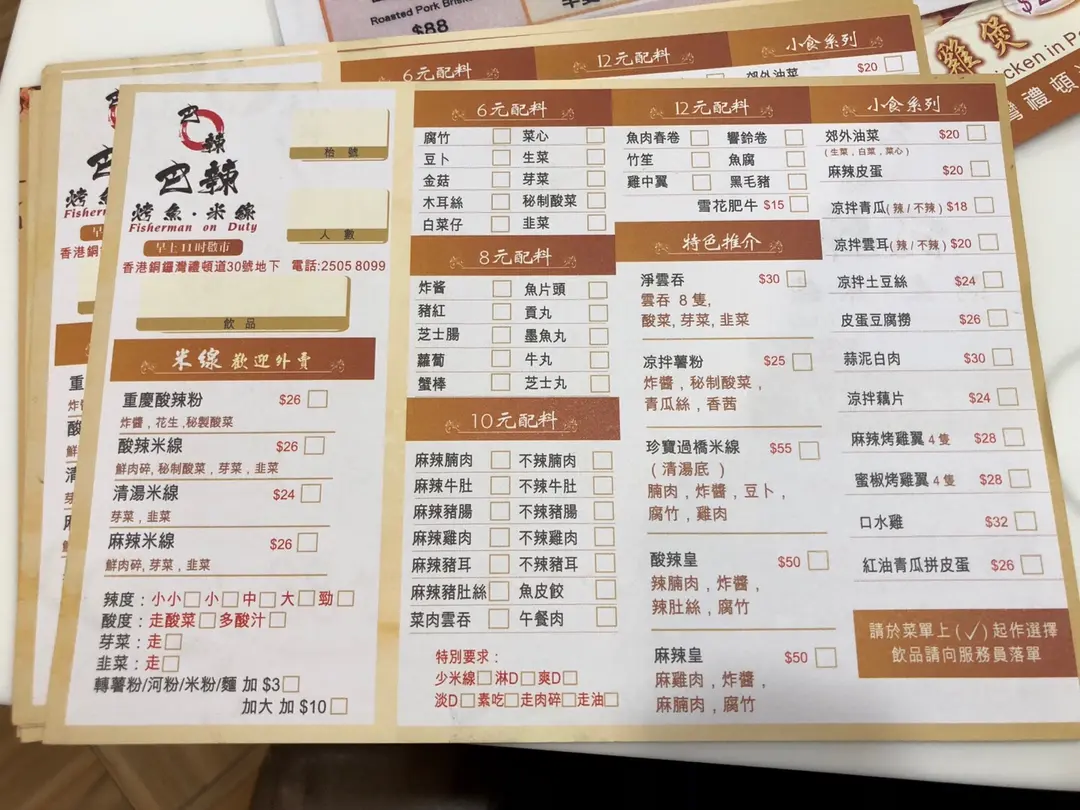 Roasted Pork Brisk
$88
6元配料
12元配料
小食系列
郊外油菜 $20
雞煲
icken in P
灣禮頓
巴辣
烤魚
Fisher
巴辣
巴辣
烤魚·米線
Fisherman on Duty
早上11時啟市
香港銅鑼灣禮頓道30號地下 電話:2505 8099
枱號
人數
飲品
米線 歡迎外賣
重慶酸辣粉 $26
炸醬,花生,秘製酸菜
酸辣米線 $26
鮮肉碎,秘制酸菜,芽菜,韭菜
清湯米線 $24
芽菜,韭菜
麻辣米線 $26
鮮肉碎,芽菜,韭菜
辣度:小小 小 中 大 勁
酸度:走酸菜 多酸汁
芽菜:走
韭菜:走
轉薯粉/河粉/米粉/麵 加 $3
加大 加 $10
6元配料
腐竹 菜心
豆卜 生菜
金菇 芽菜
木耳絲 秘制酸菜
白菜仔 韭菜
8元配料
炸醬 魚片頭
豬紅 貢丸
芝士腸 墨魚丸
蘿蔔 牛丸
蟹棒 芝士丸
10元配料
麻辣腩肉 不辣腩肉
麻辣牛肚 不辣牛肚
麻辣豬腸 不辣豬腸
麻辣雞肉 不辣雞肉
麻辣豬耳 不辣豬耳
麻辣豬肚絲 魚皮餃
菜肉雲吞 午餐肉
特別要求:
少米線 淋D 爽D
淡D 素吃 走肉碎 走油
12元配料
魚肉春卷 響鈴卷
竹笙 魚腐
雞中翼 黑毛豬
雪花肥牛 $15
特色推介
淨雲吞 $30
雲吞 8隻,
酸菜,芽菜,韭菜
涼拌薯粉 $25
炸醬,秘制酸菜,
青瓜絲,香茜
珍寶過橋米線 $55
(清湯底)
腩肉,炸醬,豆卜,
腐竹,雞肉
酸辣皇 $50
辣腩肉,炸醬,
辣肚絲,腐竹
麻辣皇 $50
麻雞肉,炸醬,
麻腩肉,腐竹
小食系列
郊外油菜 $20
(生菜,白菜,菜心)
麻辣皮蛋 $20
凉拌青瓜(辣/不辣) $18
凉拌雲耳(辣/不辣) $20
凉拌土豆絲 $24
皮蛋豆腐撈 $26
蒜泥白肉 $30
凉拌藕片 $24
麻辣烤雞翼 4隻 $28
蜜椒烤雞翼 4隻 $28
口水雞 $32
紅油青瓜拼皮蛋 $26
請於菜單上(✓)起作選擇
飲品請向服務員落單